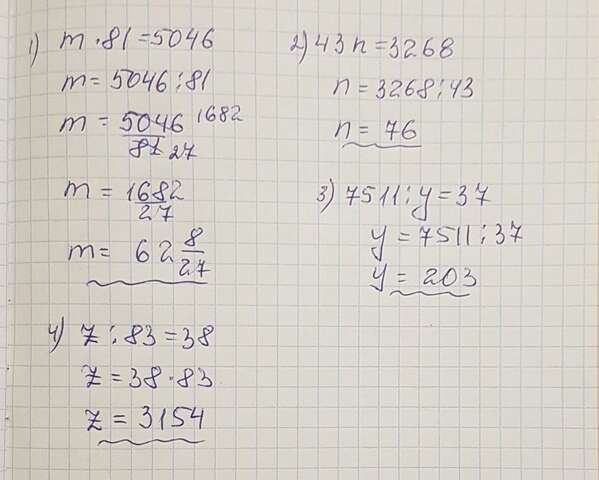 1) m · 81 = 5046
m = 5046 : 81
m = 5046 1682 / 81 27
m = 1682/27
m = 62 8/27
2) 43n = 3268
n = 3268 : 43
n = 76
3) 7511 : y = 37
y = 7511 : 37
y = 203
4) z : 83 = 38
z = 38 · 83
z = 3154